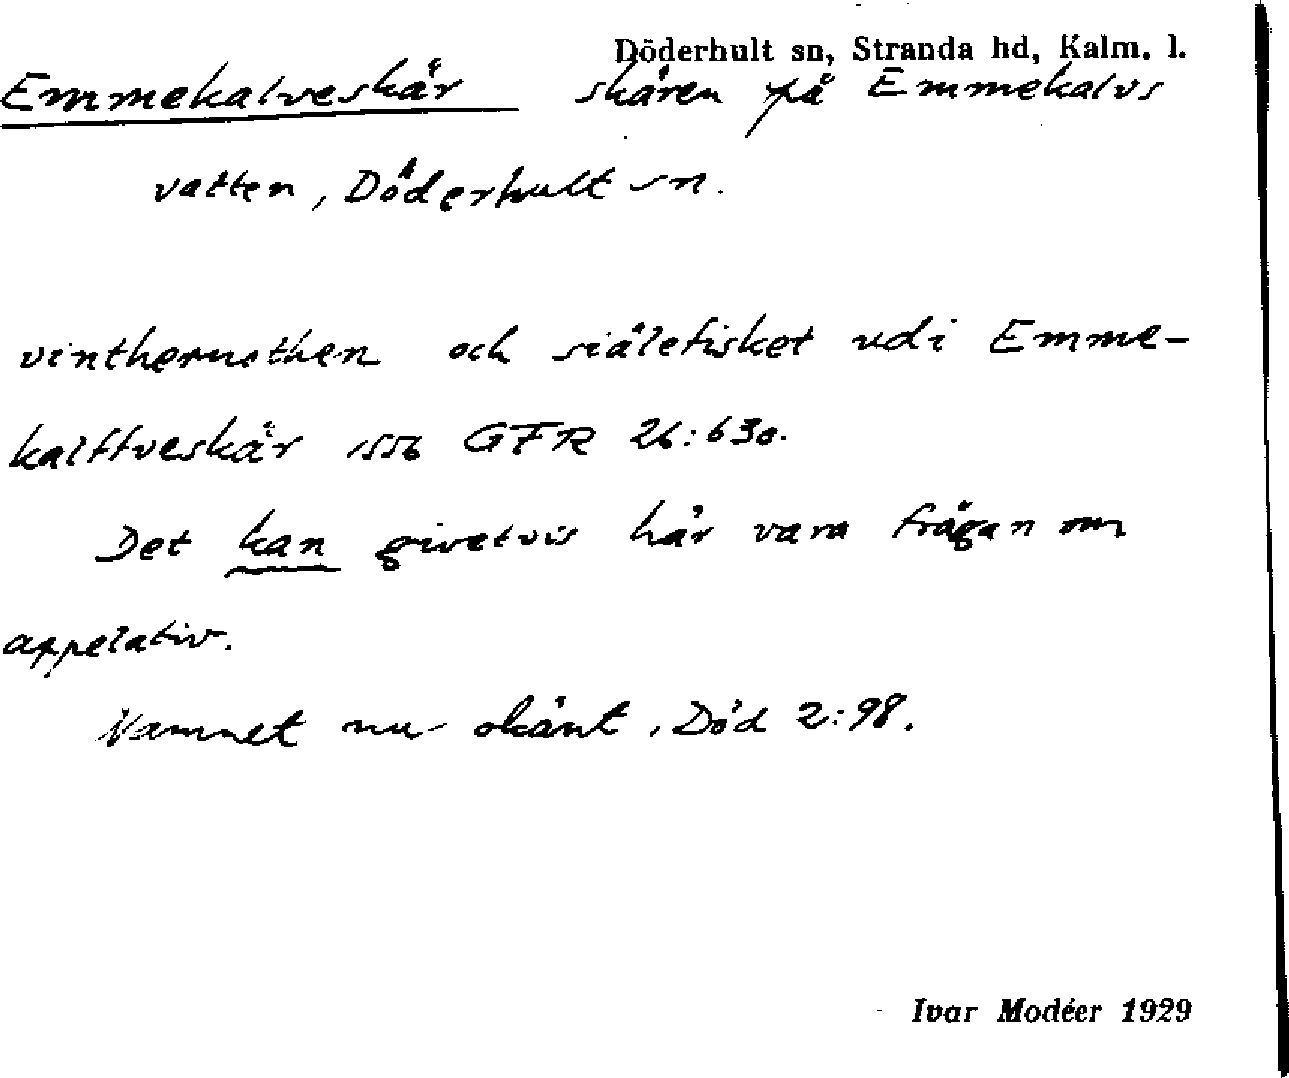 Döderhult sn, Stranda hd, Kalm. l.
Emmekalveskär skären på Emmekalvs
vatten, Döderhult sn.
vinthernothen och siälefisket udi Emme-
kalffveskär 1556 GFR 26:630.
Det kan givetvis här vara frågan om
appelativ.
Namnet nu okänt, Död 2:98.
Ivar Modéer 1929